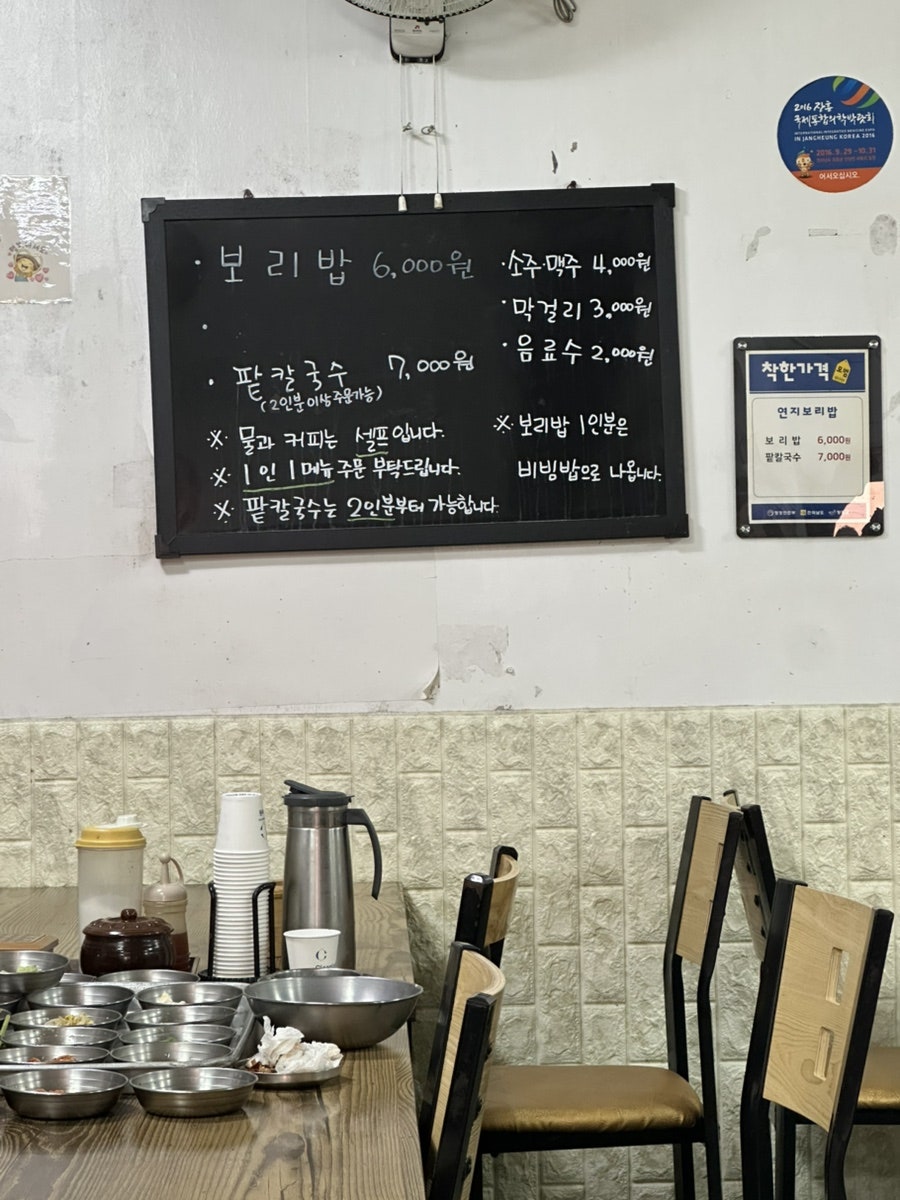 2016 장흥
국제통합의학박람회
INTERNATIONAL INTEGRATIVE MEDICINE EXPO
IN JANGHEUNG KOREA 2016
2016. 9. 29 ~ 10. 31
어서오십시오
· 보리밥 6,000원
·
· 팥칼국수 7,000원
(2인분 이상 주문가능)
※ 물과 커피는 셀프입니다.
※ 1인 1메뉴 주문 부탁드립니다.
※ 팥칼국수는 2인분부터 가능합니다.
· 소주·맥주 4,000원
· 막걸리 3,000원
· 음료수 2,000원
※ 보리밥 1인분은
비빔밥으로 나옵니다.
착한가격
연지보리밥
보리밥 6,000원
팥칼국수 7,000원
행정안전부 전라남도